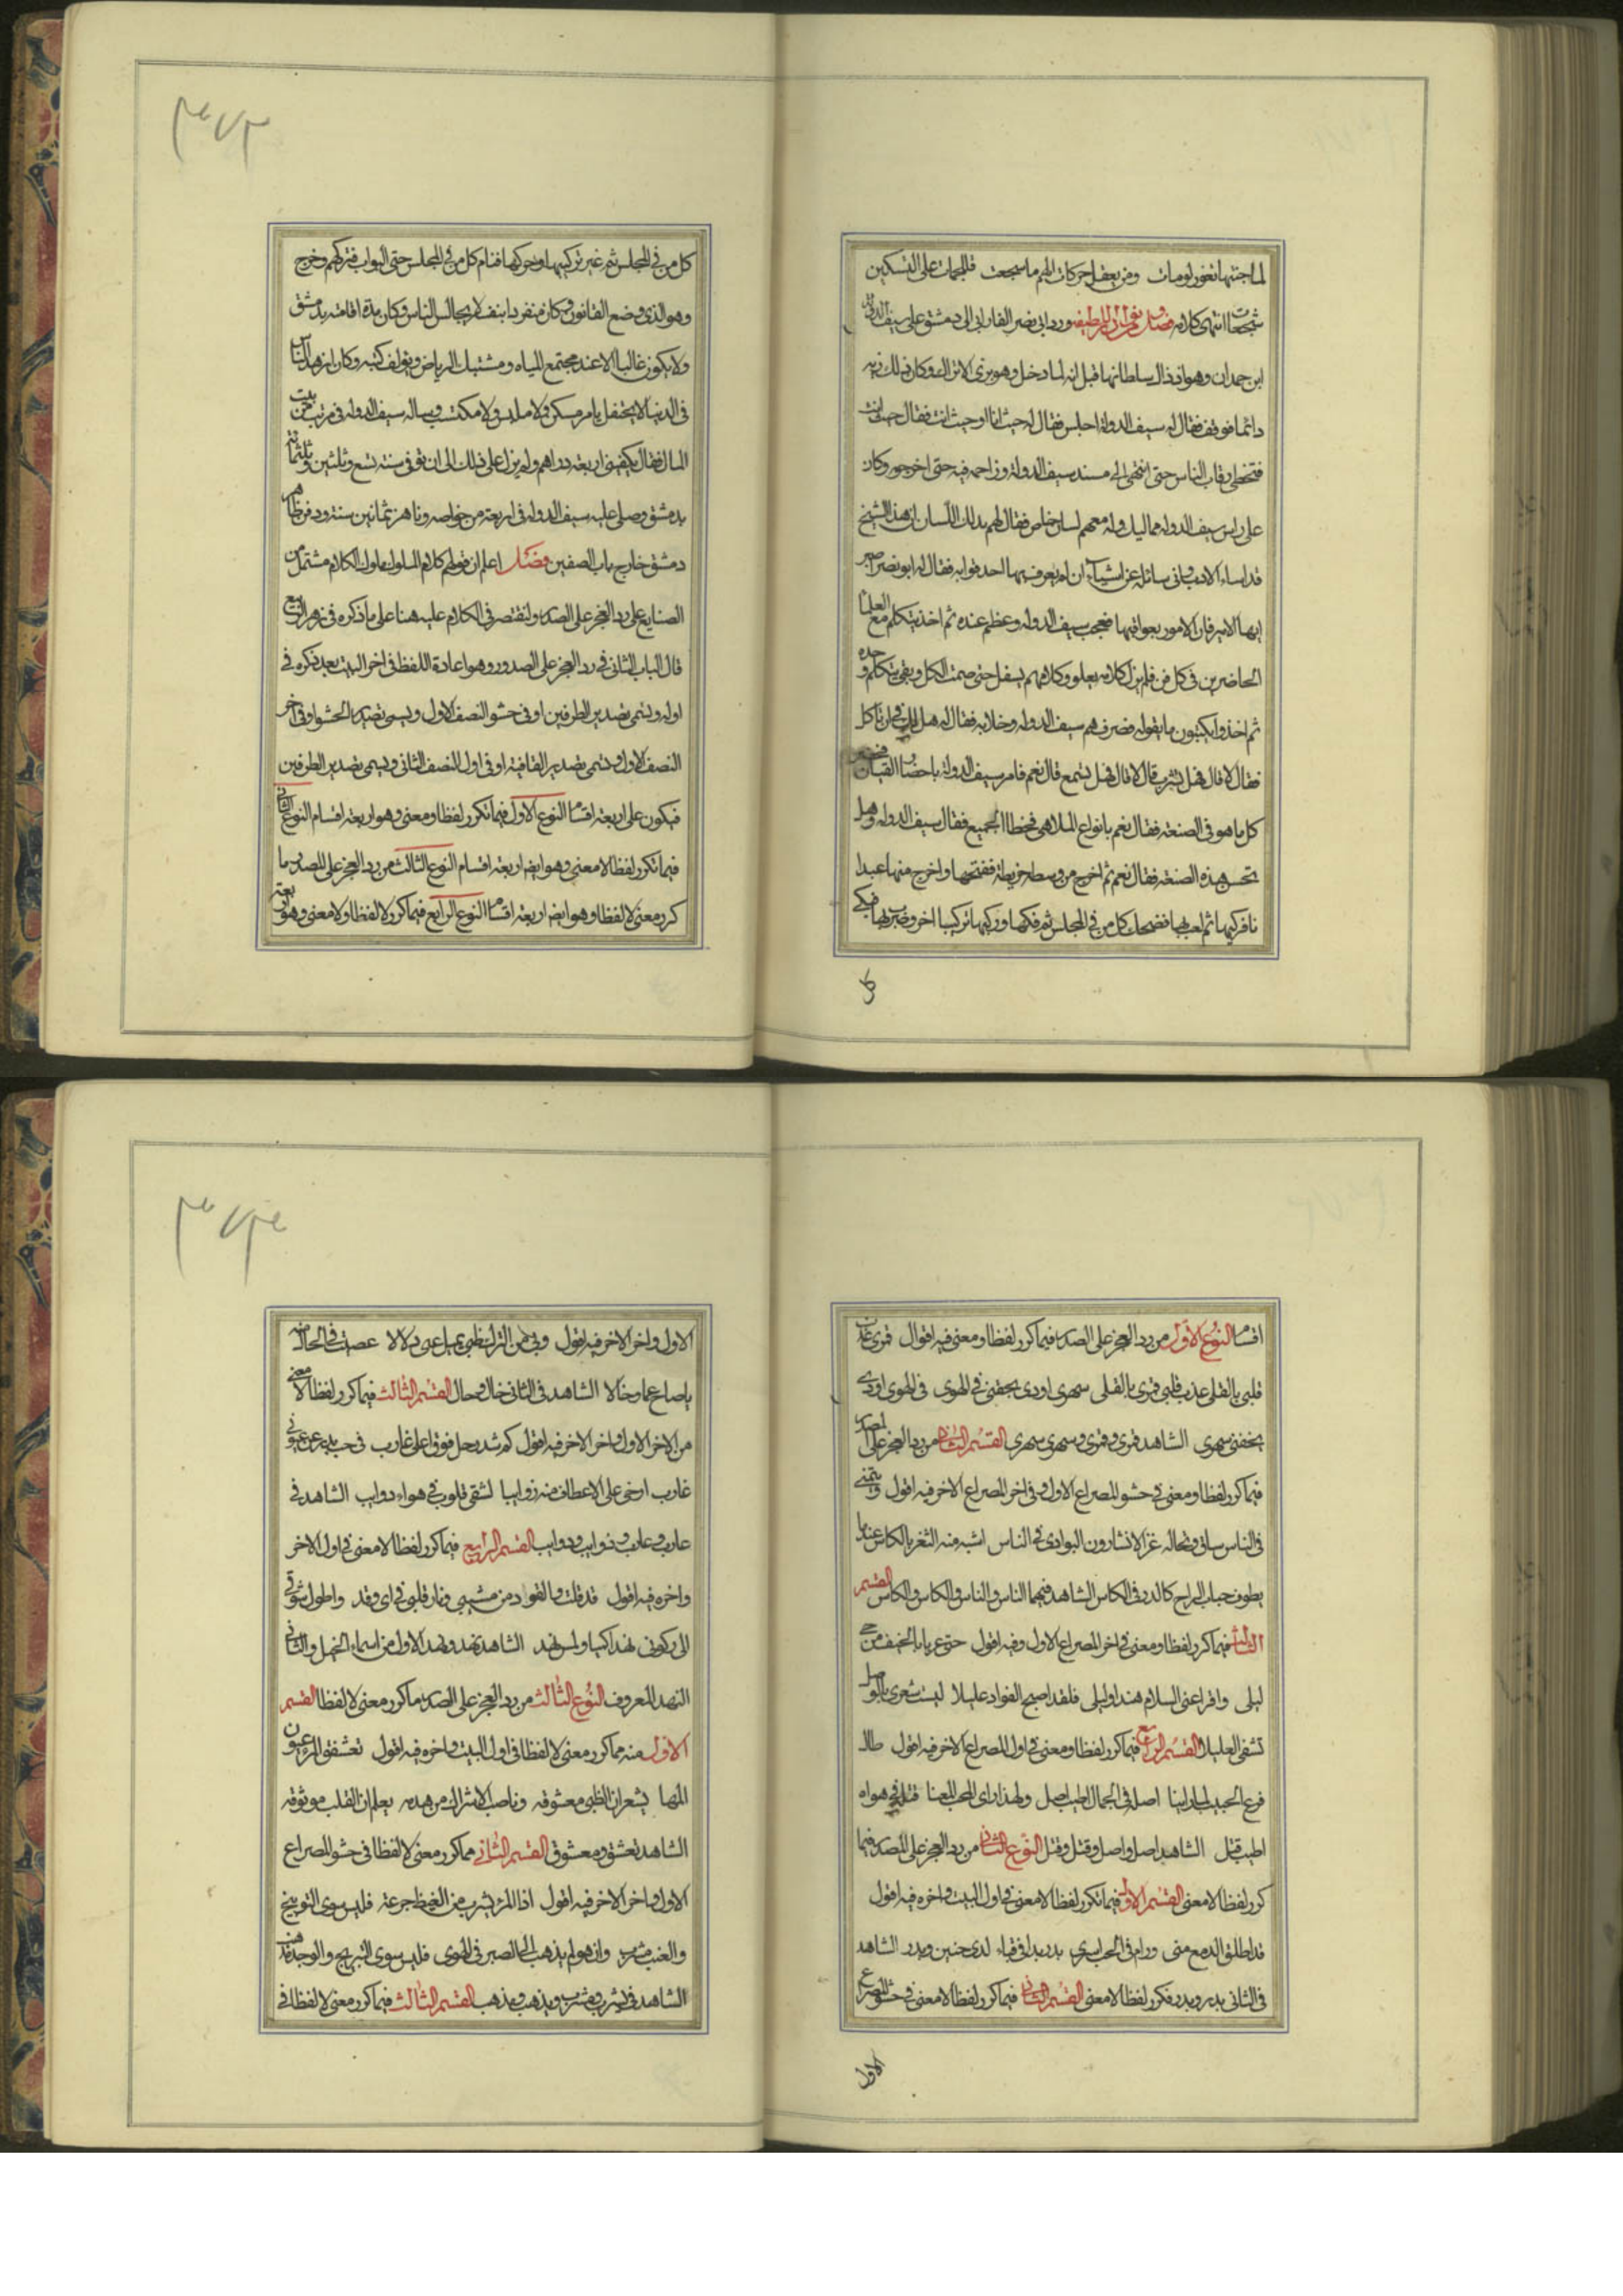 لما جتها تغور لومات ومن بعض حركات اللم ما سجعت فلجمات على التسكين
شجعات انتهى كلامه فصل ورد ابى نصر الفارابى الى دمشق على سيف الدولة
ابن حمدان وهو اذ ذاك سلطانها قيل انه لما دخل وهو بزى الاتراك وكان ذلك زيه
دائما فوقف فقال له سيف الدولة اجلس فقال له حيث انا او حيث انت فقال حيث انت
فتخطى رقاب الناس حتى انتهى الى مسند سيف الدولة وزاحمه فيه حتى اخرجه وكان
على راس سيف الدولة مماليك وله معهم لسان خاص فقال لهم بذلك اللسان ان هذا الشيخ
قد اساء الادب وانى سائله عن اشياء ان لم يعرف بها احد قوا به فقال له ابو نصر اصبر
ايها الامير فان الامور بعواقبها فعجب سيف الدولة وعظم عنده ثم اخذ يتكلم مع العلماء
الحاضرين فى كل فن فلم يزل كلامه يعلو وكلامهم يسفل حتى صمت الكل وبقى يتكلم وحده
ثم اخذوا يكتبون ما يقوله فصرفهم سيف الدولة وخلا به فقال له هل لك فى ان تاكل
فقال لا قال فهل تشرب قال لا قال فهل تسمع قال نعم فامر سيف الدولة باحضار القيان فحضر
كل ما هو فى الصنعة فقال نعم بانواع الملاهى فخطا الجميع فقال سيف الدولة وهل
تحسن هذه الصنعة فقال نعم ثم اخرج من وسطه خريطة ففتحها واخرج منها عيدا
نا فركبها ثم لعب بها فضحك كل من فى المجلس ثم فكها وركبها تركيبا اخر وضرب بها فبكى
كل
كل من فى المجلس ثم غير تركيبها وحركها فنام كل من فى المجلس حتى البواب فتركهم وخرج
وهو الذى وضع القانون وكان منفردا بنفسه لا يجالس الناس وكان مدة اقامته بدمشق
ولا يكون غالبا الا عند مجتمع المياه ومشتبك الرياض ويؤلف كتبه وكان ازهد الناس
فى الدنيا لا يحتفل بامر مسكن ولا ملبس ولا مكتسب وساله سيف الدولة فى مرتب من بيت
المال فقال يكفينى اربعة دراهم ولم يزل على ذلك الى ان توفى سنة تسع وثلثين وثلثمائة
بدمشق وصلى عليه سيف الدولة فى اربعة من خواصه وناهز ثمانين سنة ودفن ظاهر
دمشق خارج باب الصغير فصل اعلم ان قولهم كلام الملوك ملوك الكلام مشتمل من
الصنايع على رد العجز على الصدر ولنقتصر فى الكلام عليه هنا على ما ذكره فى زهر الربيع
قال الباب الثانى فى رد العجز على الصدور وهو اعادة اللفظ فى اخر البيت بعد ذكره فى
اوله ويسمى تصدير الطرفين او فى حشو النصف الاول ويسمى تصدير الحشو او فى اخر
النصف الاول ويسمى تصدير القافية او فى اول النصف الثانى ويسمى تصدير الطرفين
فيكون على اربعة اقسام النوع الاول فيما تكرر لفظا ومعنى وهو اربعة اقسام النوع الثانى
فيما تكرر لفظا لا معنى وهو ايضا اربعة اقسام النوع الثالث من رد العجز على الصدر ما
كرر معنى لا لفظا وهو ايضا اربعة اقسام النوع الرابع فيما كرر لا لفظا ولا معنى وهو اربعة
اقسام النوع الاول من رد العجز على الصدر فيما كرر لفظا ومعنى فيه اقوال قمرى
قلبى بالقلى عذب قلبى قمرى بالقلى سهرى اودى بجفنى فى الهوى فى الهوى اودى
بجفنى سهرى الشاهد قمرى وقمرى وسهرى سهرى القسم الثانى من رد العجز على الصدر
فيما كرر لفظا ومعنى فى حشو المصراع الاول وفى اخر المصراع الاخر فيه اقول
فى الناس ساق غزالا البوادى فى الناس اشبه منه الثغر بالكاس عندما
يطوف حباب الراح كالدر فى الكاس الشاهد فيهما الناس والناس والكاس والكاس القسم
الثالث فيما كرر لفظا ومعنى فى اخر المصراع الاول وفيه اقول حتى عربا بالخيف من حى
ليلى واقرا عنى السلام هندا وليلى فلقد اصبح الفواد عليلا ليت شعرى بالوصل
تشفى العليلا القسم الرابع فيما كرر لفظا ومعنى فى اول المصراع الاخر فيه اقول طال
فرع الحبيب اصله فى الجمال اطيب اصل ولهذا راى المحب المعنا قتله فى هواه
اطيب قتل الشاهد اصل واصل وقتل وقتل النوع الثانى من رد العجز على الصدر فيما
كرر لفظا لا معنى القسم الاول فيما تكرر لفظا لا معنى فى اول البيت واخره فيه اقول
قد اطلق الدمع منى ورام فى الحب اسرى بدر بدا فى قباء لدى حنين وبدر الشاهد
فى الثانى بدر وبدر فكرر لفظا لا معنى القسم الثانى فيما كرر لفظا لا معنى فى حشو المصراع
الاول
الاول واخر الاخر فيه اقول وبى من الترك ظبى يميل عنى دلالا عصيت فى الحال
يا صاح عما وخالا الشاهد فى الثانى خال وحال القسم الثالث فيما كرر لفظا لا معنى
من الاخر الاول واخر الاخر فيه اقول كم شد رحل فوق اعلى غارب فى حب بدر عن عيونى
غارب ارخى على الاعطاف منه ذوايبا لشقى قلوب فى هواه ذوايب الشاهد فى
غارب وغارب وذوايب وذوايب القسم الرابع فيما كرر لفظا لا معنى فى اول الاخر
واخره فيه اقول قد قلت والفواد من مشيبى ونار قلبى فى اى وقد واطول شوقى
الى ركوبى نهدا كبيا ولمس نهد الشاهد نهد ونهد الاول من اسماء الخيل والثانى
النهد المعروف النوع الثالث من رد العجز على الصدر ما كرر معنى لا لفظا القسم
الاول منه ما كرر معنى لا لفظا فى اول البيت واخره فيه اقول تعشقت المرء عيون
المها يشعر ان الظبى معشوقه وناصب الاشراك من هدبه يعلم ان القلب موثوقه
الشاهد تعشق ومعشوق القسم الثانى مما كرر معنى لا لفظا فى حشو المصراع
الاول واخر الاخر فيه اقول اذا المرء يشرب من الغيظ جرعة فليس سوى التوبيخ
والعتب مشرب وان هو لم يذهب الى الصبر فى الهوى فليس سوى التبريح والوجد مذهب
الشاهد فى يشرب ومشرب ويذهب ومذهب القسم الثالث فيما كرر معنى لا لفظا فى